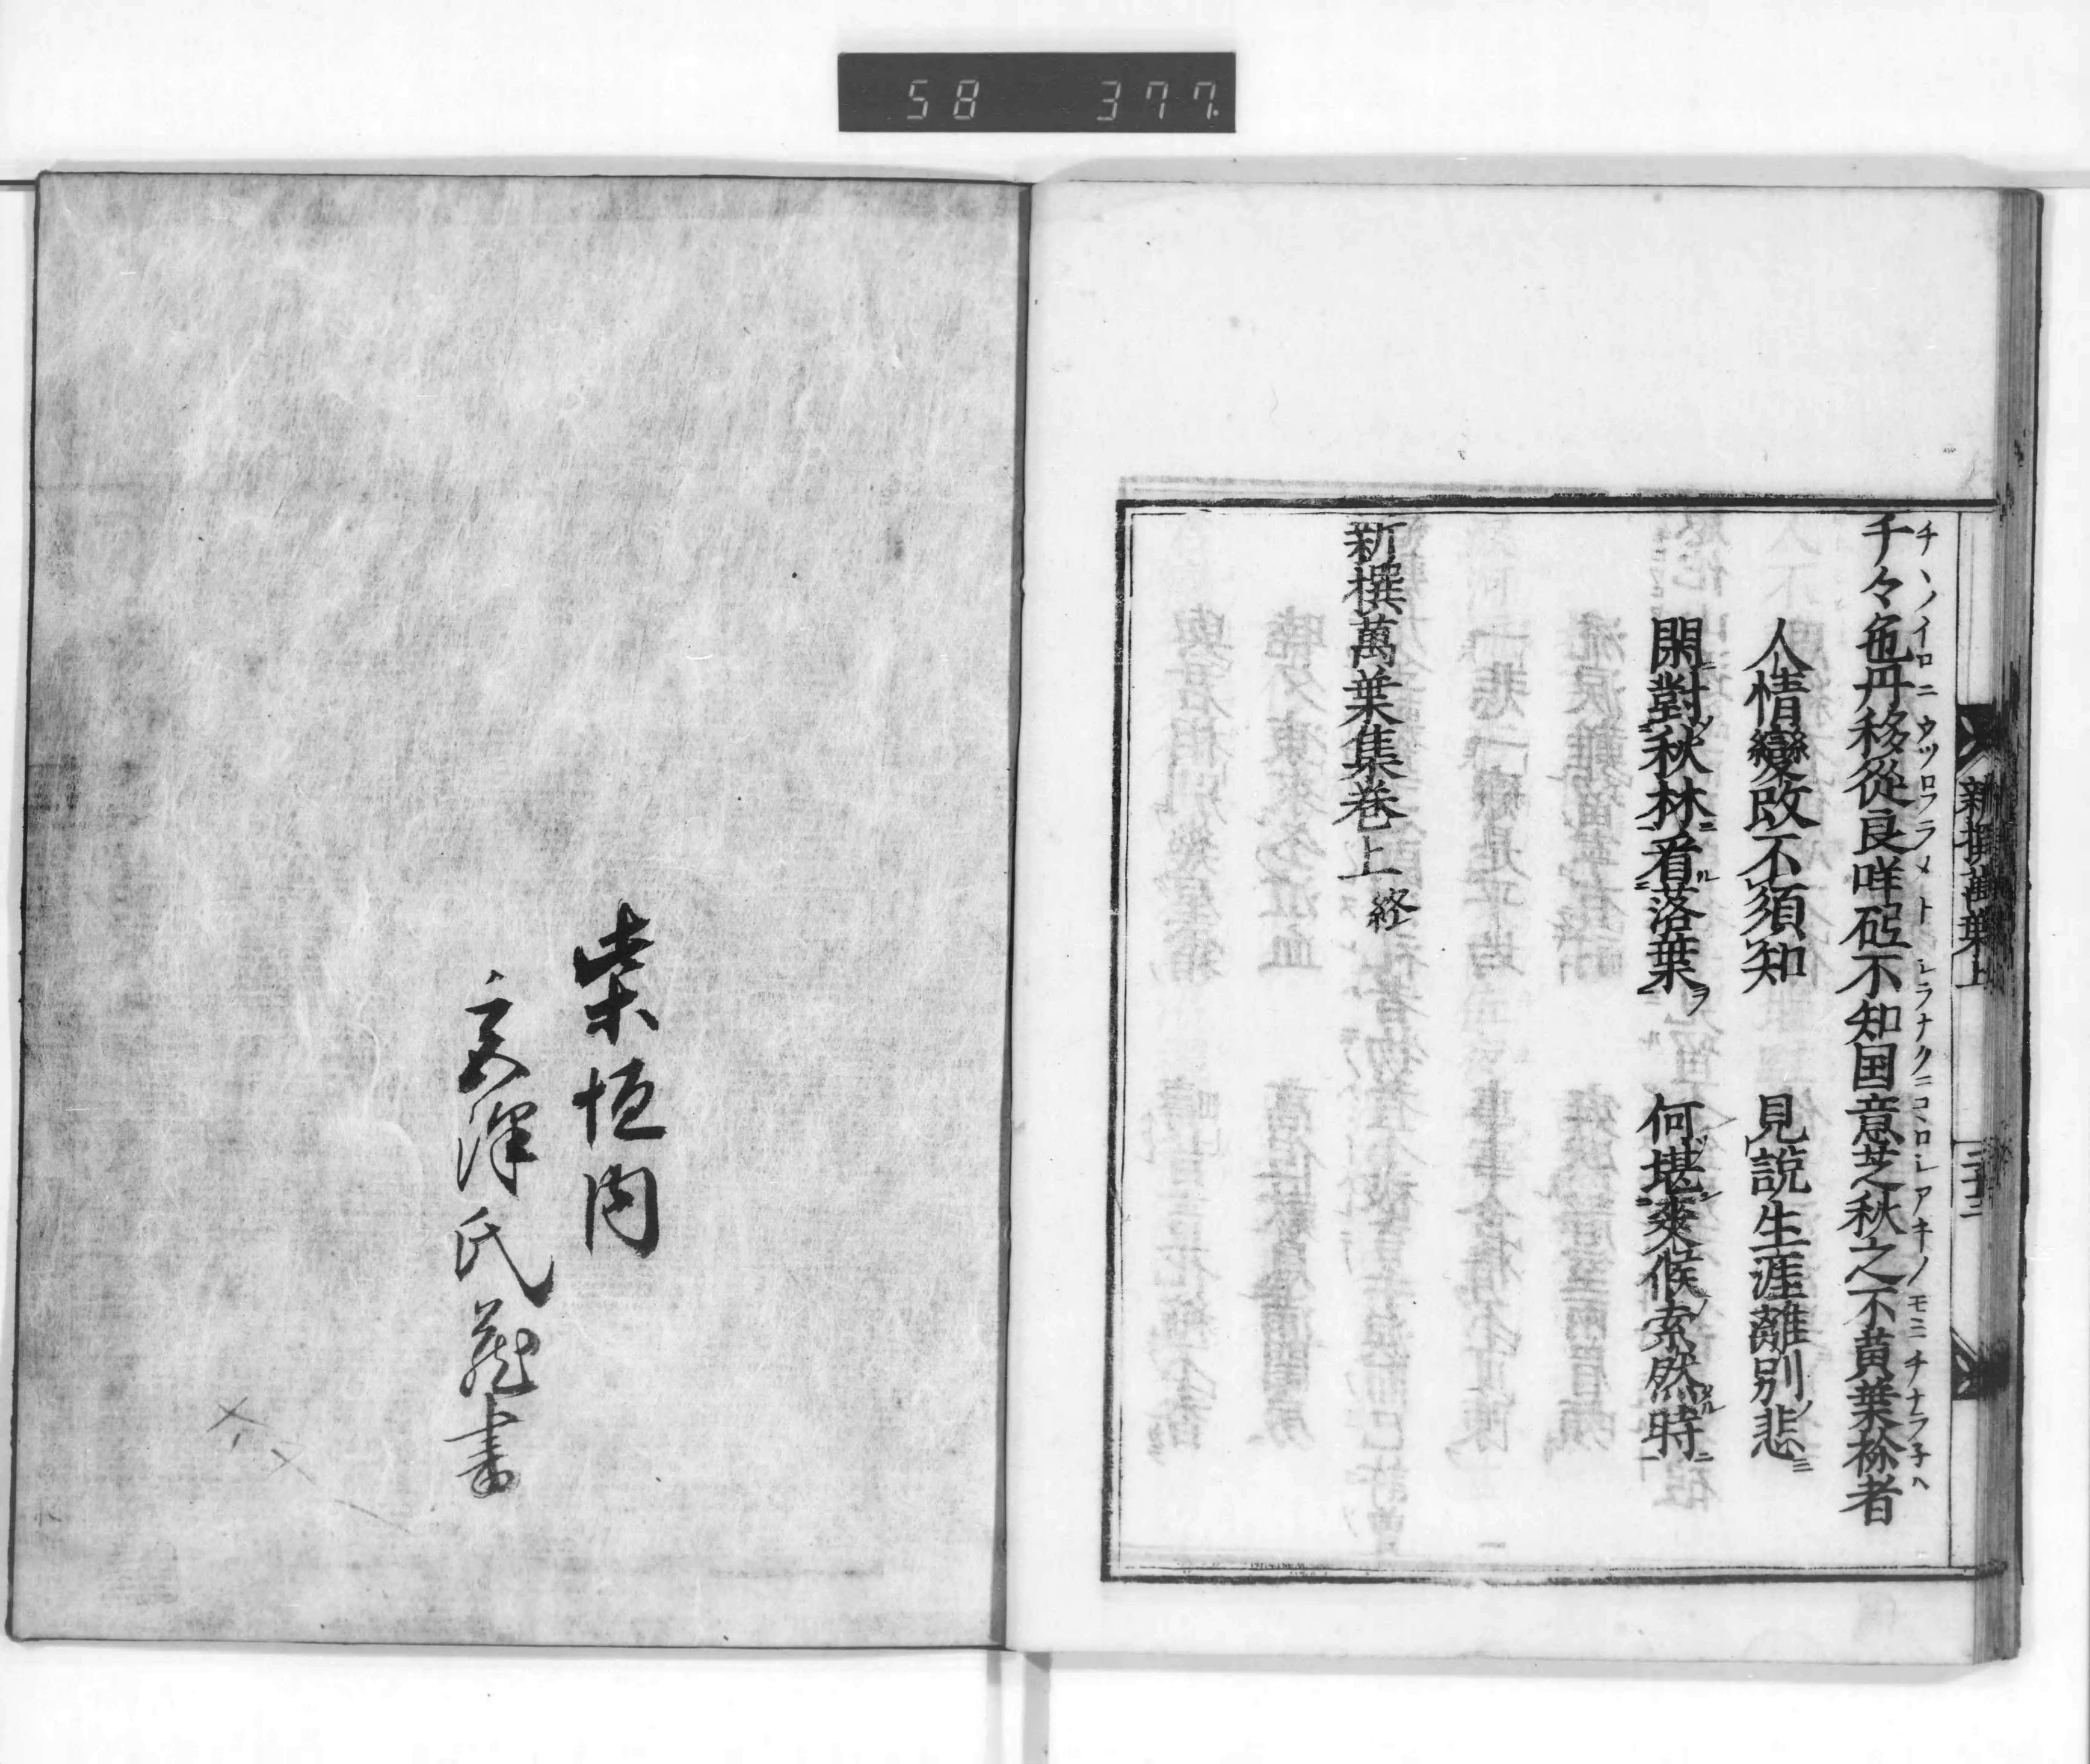 58 377
新撰萬葉上
千々色丹移徒良咩砼不知国意芝秋之不黄葉捈者
チヽノイロニウツロフラメトシラナクニコヽロシアキノモミチナラ子ハ
人情變改不須知 見說生涯離別悲
閑對秋林看落葉 何堪爽候索然時
新撰萬葉集巻上 終
柴垣内
氏蔵書